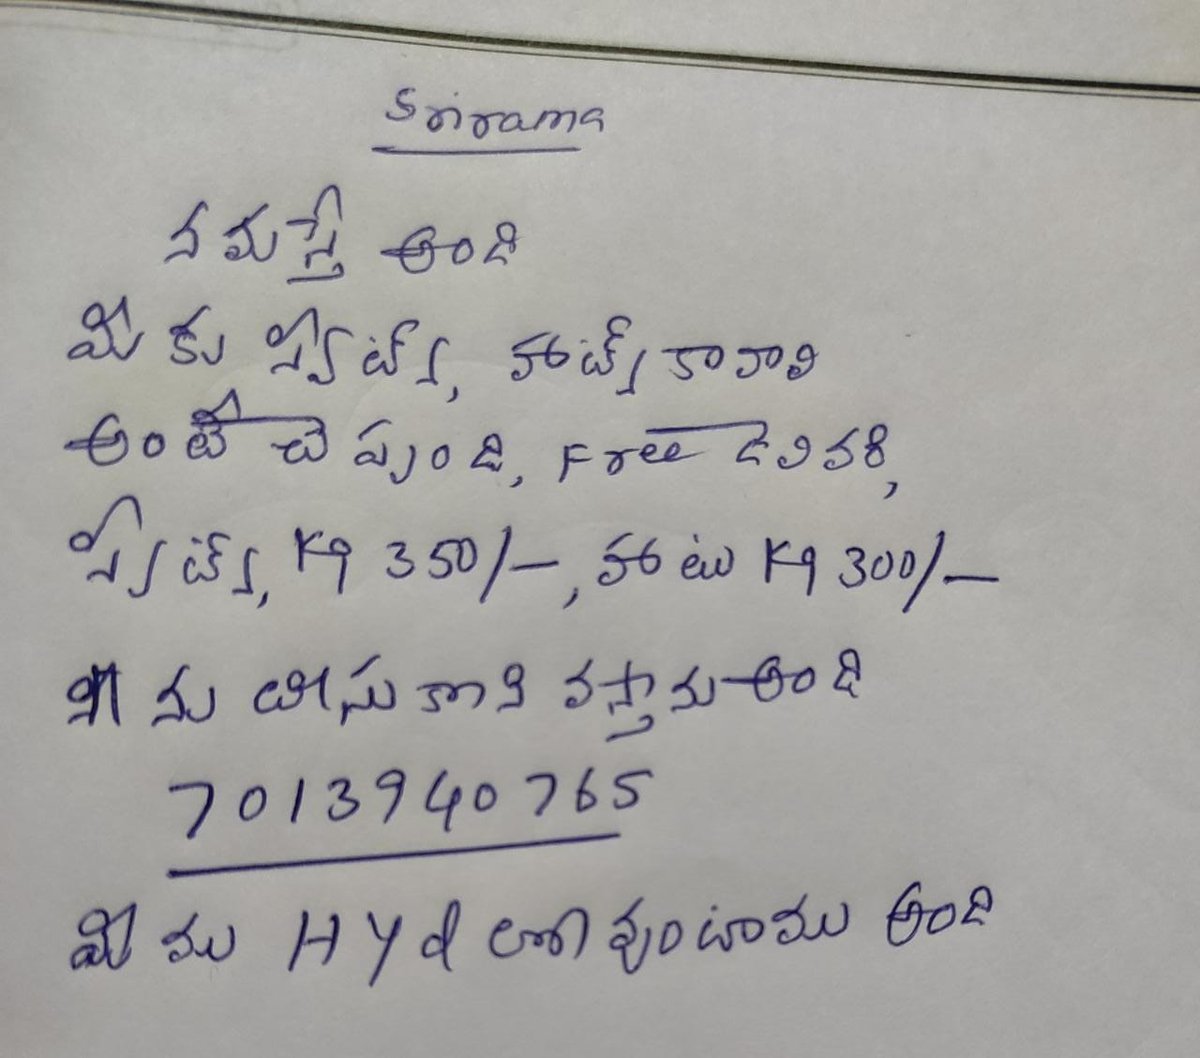 Srirama
నమస్తే అండి
మీకు స్వీట్స్, హాట్స్ కావాలి
అంటే చెప్పండి, Free డెలివరి,
స్వీట్స్, Kg 350/-, హాటు Kg 300/-
నేను తీసుకొని వస్తాను అండి
7013940765
మేము Hyd లోగ వుంటాము అండి